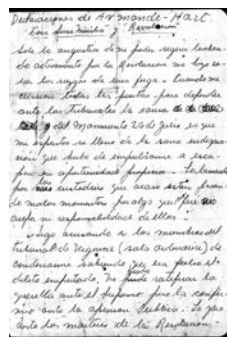 Declaraciones de Armando Hart.
Con Luis Ministro y Revolución
Solo la angustia de no poder seguir luchan-
do activamente por la Revolución me hizo co-
rrer los riesgos de una fuga. Cuando me
cerraron todas las puertas para defender
ante los tribunales la causa
del Movimiento 26 de Julio es que
mi espíritu se llenó de la sana indigna-
ción que hubo de impulsarme a esca-
par en oportunidad propicia. Lo lamento
por mis custodios que acaso estén pasan-
do malos momentos por algo que no
cuepa ni responsabilidad de ellos.
Sigo acusando a los miembros del
Tribunal de Urgencia (sala ordinaria) de
condenarme sabiendo que era falso el
delito imputado, no pude ratificar la
querella ante el Supremo pero la confir-
mo ante la Opinión Pública. Lo juro
ante los mártires de la Revolución.